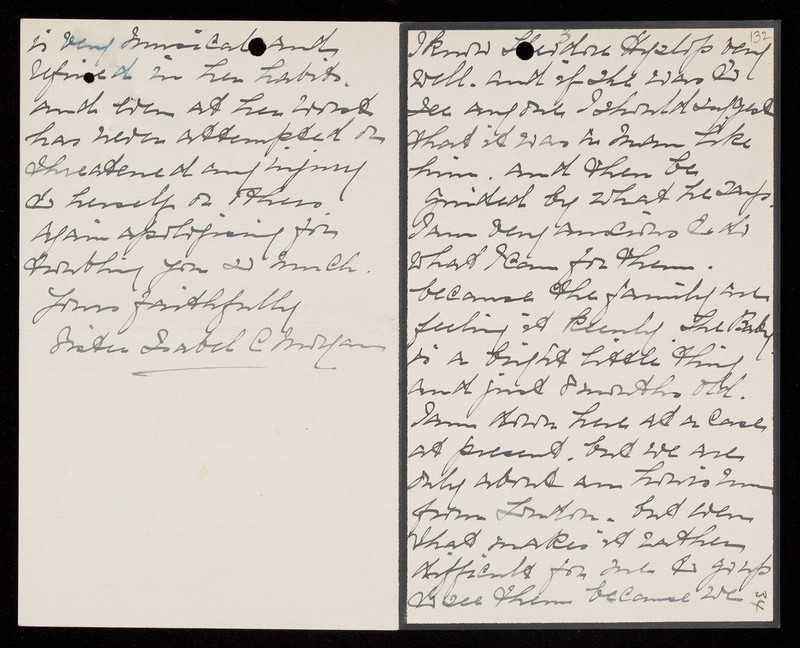 is very musical and
refined in her habits.
and even at her worst
has never attempted or
threatened any injury
to herself or others
again apologising for
troubling you so much.
Yours faithfully
Sister Isabel C Morgan
132
I know Theodore Hyslop very
well. and if she was to
see anyone I should suggest
that it was a man like
him. and then be
guided by what he says.
I am very anxious to do
what I can for them.
because the family are
feeling it keenly The Baby
is a bright little thing
and just 8 months old.
I am down here at a case
at present. but we are
only about an hours run
from London. but even
that makes it rather
difficult for me to go up
to see them because we
34